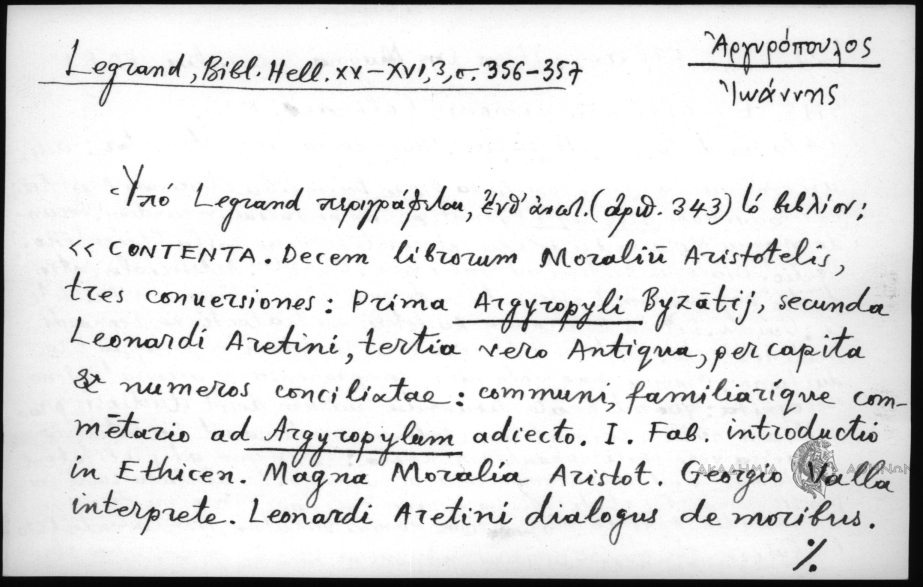 Legrand, Bibl. Hell. XV–XVI, 3, σ. 356–357
Ἀργυρόπουλος
Ἰωάννης
Ὑπό Legrand περιγράφεται, ἐνθ' ἀνωτ. (ἀριθ. 343) τό βιβλίον:
<< CONTENTA. Decem librorum Moraliū Aristotelis,
tres conuersiones: Prima Argyropyli Byzātij, secunda
Leonardi Aretini, tertia vero Antiqua, per capita
& numeros conciliatae: communi, familiarique com-
mētario ad Argyropylum adiecto. I. Fab. introductio
in Ethicen. Magna Moralia Aristot. Georgio Valla
interprete. Leonardi Aretini dialogus de moribus.
%
ΑΚΑΔΗΜΙΑ ΑΘΗΝΩΝ